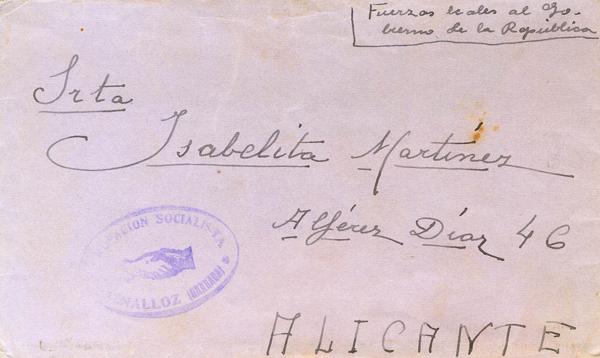 Fuerzas leales al Go-
bierno de la República
Srta
Isabelita Martínez
Alférez Díaz 46
ALICANTE
SOCIALISTA
(GRANADA)